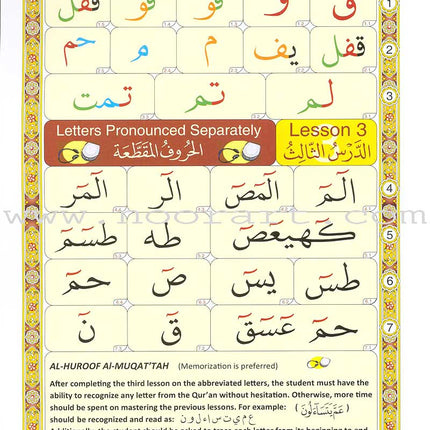 ق و فو فو قفل
قفل يف م م قم حم
لم تم تمت
Letters Pronounced Separately Lesson 3
الحُرُوفُ المُقَطَّعَة الدَّرْسُ الثَّالِثُ
الٓمٓ الٓمٓصٓ الٓرٰ الٓمٓرٰ
كٓهٰيٰعٓصٓ طٰهٰ طٰسٓمٓ
طٰسٓ يٰسٓ صٓ حٰمٓ
حٰمٓ عٓسٓقٓ قٓ نٓ
AL-HUROOF Al-MUQAT'TAH (Memorization is preferred)
After completing the third lesson on the abbreviated letters, the student must have the
ability to recognize any letter from the Qur'an without hesitation. Otherwise, more time
should be spent on mastering the previous lessons. For example: (عَمَّ يَتَسَآءَلُونَ)
should be recognized and read as: ع م ي ت س ا ء ل و ن